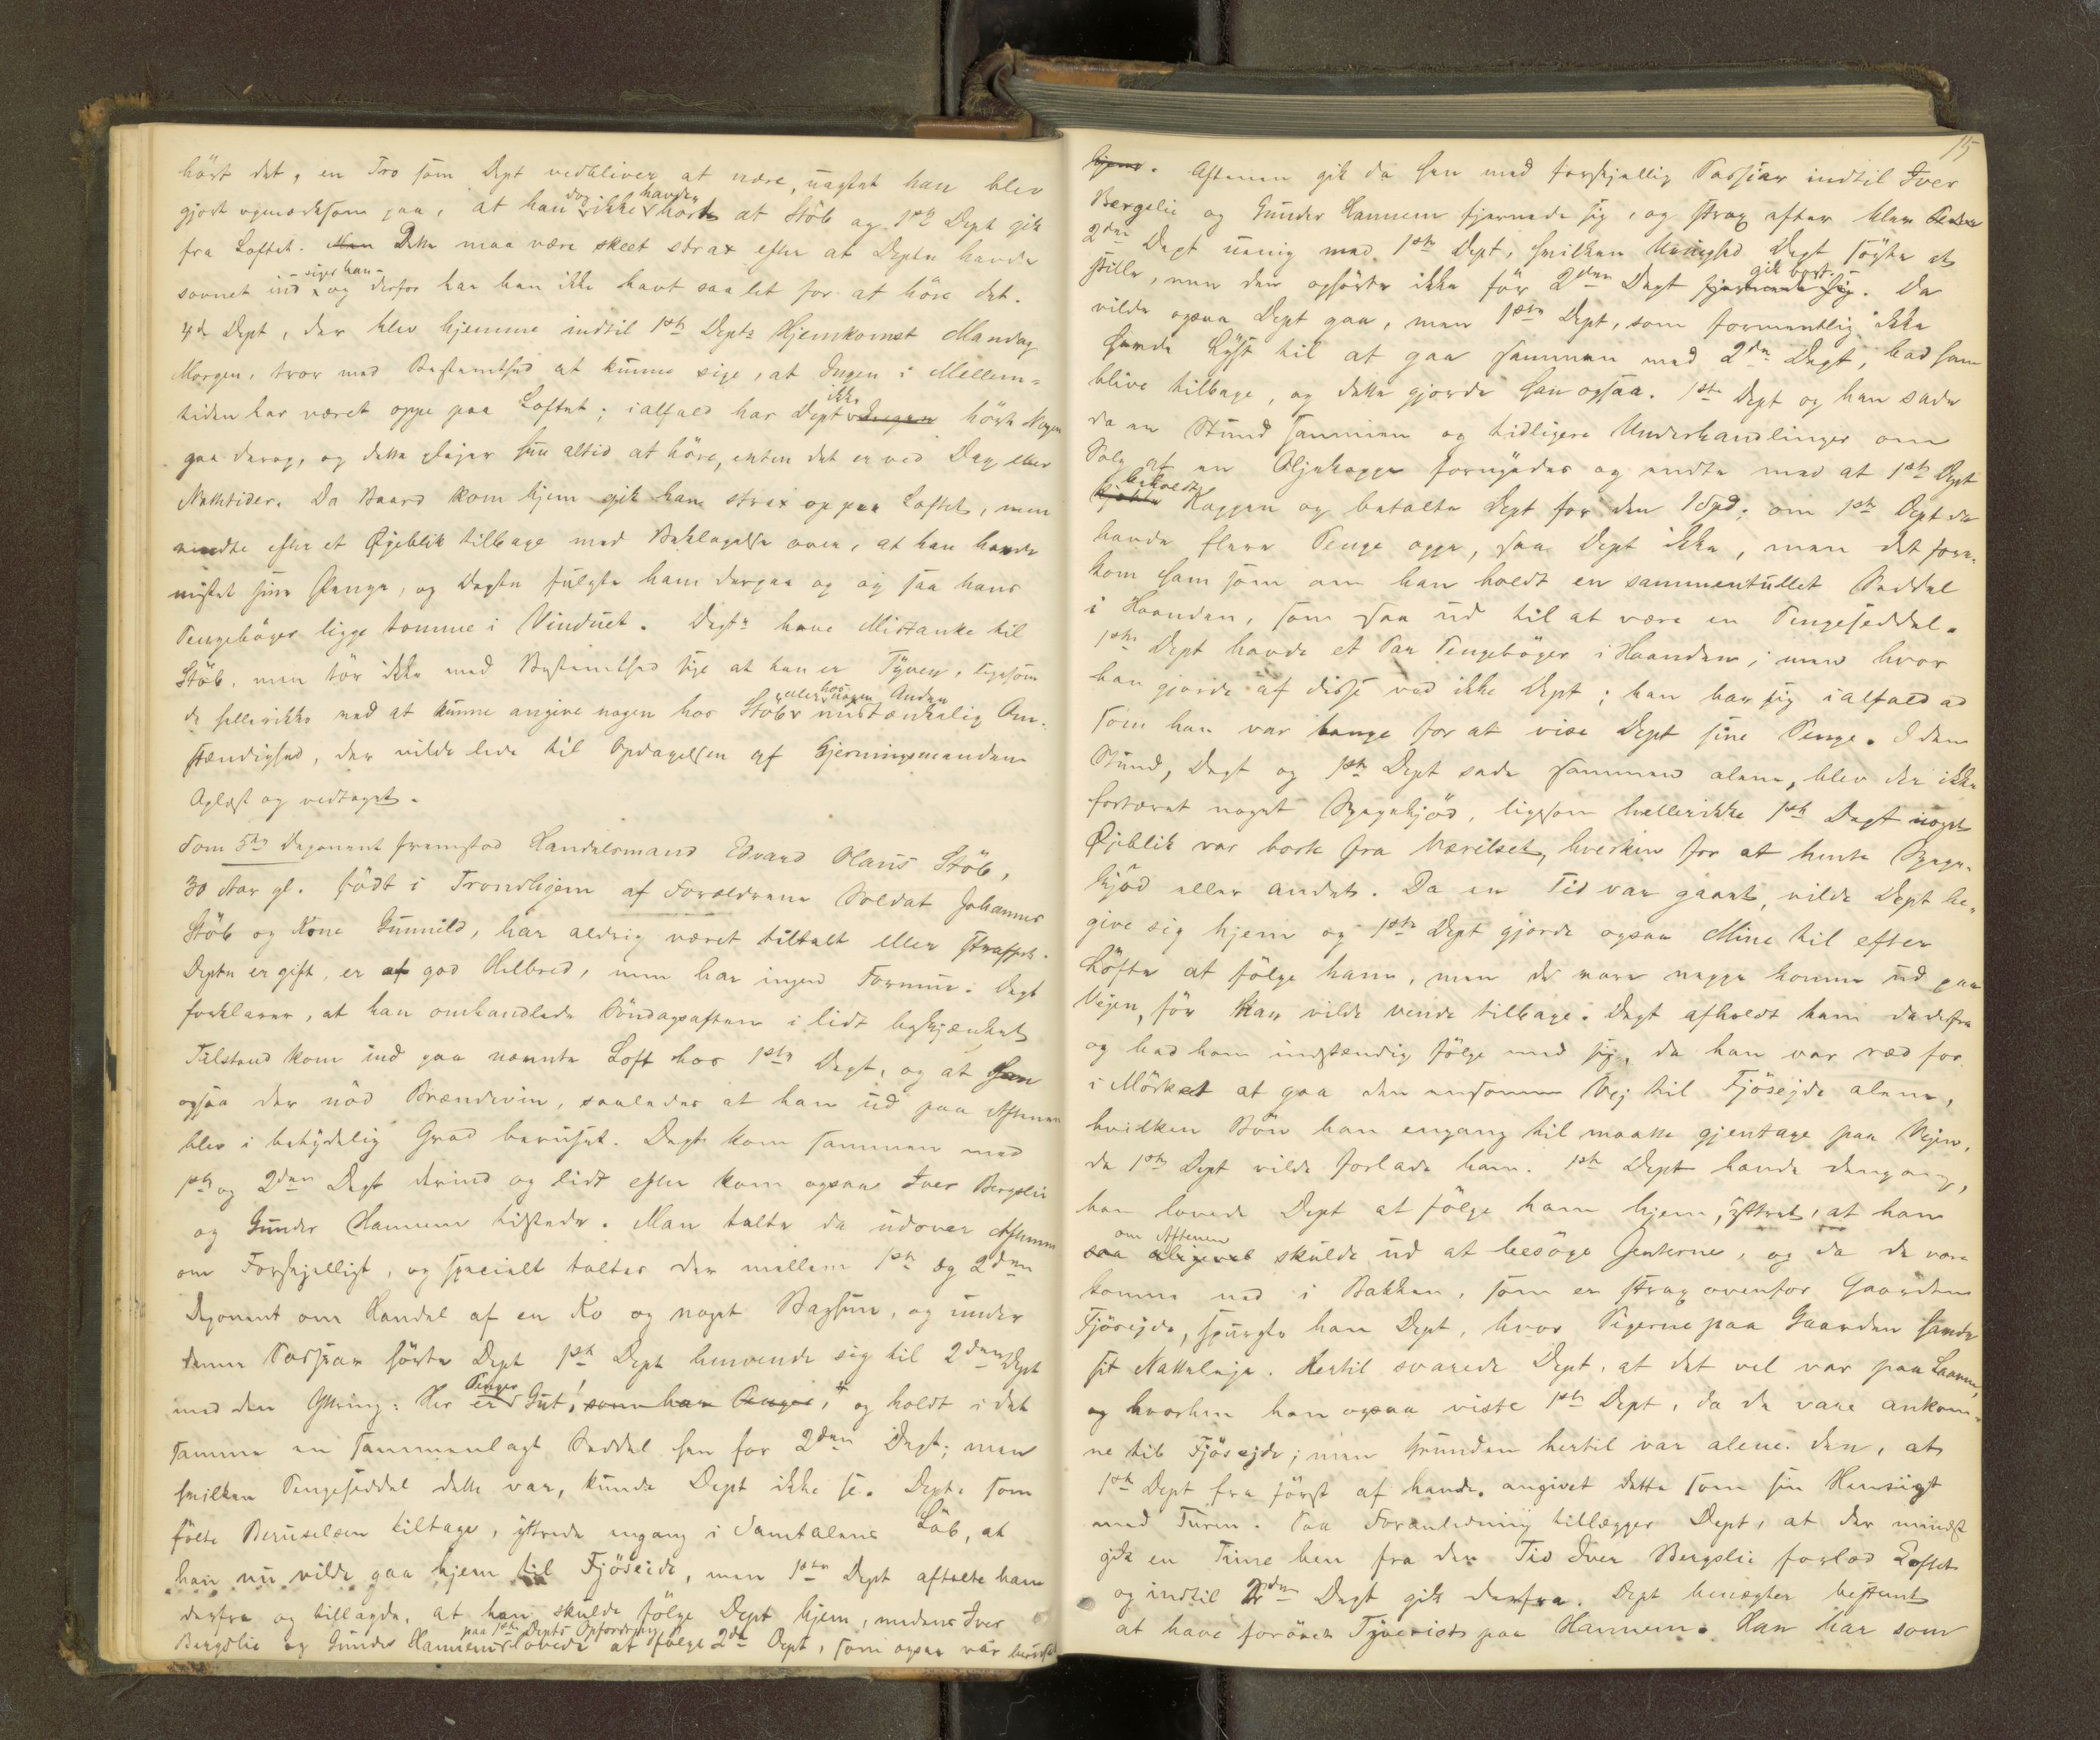 hört det, en Tro som Dept vedbliver at nære, uagtet han blev
gjort opmærksom paa, at han dog ikke havde hört at Stöb og 1ste Dept gik
fra Loftet. Men Dette maa være skeet strax efter at Depten havde
sovnet ind - siger han - og derfor har han ikke havt saa let for at höre det.
4de Dept, der blev hjemme indtil 1ste Depts Hjemkomst Mandag
Morgen, tror med Bestemthed at kunne sige, at Ingen i Mellem-
tiden har været oppe paa Loftet; ialfald har Dept ikke Ingen hört Nogen
gaa derop, og dette plejer hun altid at höre, enten det er ved Dag eller
Nattetider. Da Baard kom hjem gik han strax op paa Loftet, men
vendte efter et Øjeblik tilbage med Beklagelse over, at han havde
mistet sine Penge, og Depten fulgte ham derpaa op og saa hans
Pengebøger ligge tomme i Vinduet. Deptn have Mistanke til
Stöb, men tör ikke med Bestemthed sige at han er Tyven, ligesom
de heller ikke ved at kunne angive nogen hos Stöb eller hos nogen Anden mistænkelig Om-
stændighed, der vilde lede til Opdagelsen af Gjerningsmanden.
Oplæst og vedtaget.
Som 5te Deponent fremstod Handelsmand Edvard Olaus Stöb,
30 Aar gl. födt i Trondhjem af Forældrene Soldat Johannes
Stöb og Kone Gunnild, har aldrig været tiltalt eller straffet.
Depten er gift, er af god Helbred, men har ingen Formue. Dept
forklarer, at han omhandlede Söndagsaften i lidt beskjænket
Tilstand kom ind paa nævnte Loft hos 1ste Dept, og at han
ogsaa der nöd Brændevin, saaledes at han ud paa Aftenen
blev i betydelig Grad beruset. Dept kom sammen med
1ste og 2den Dept derind og lidt efter kom ogsaa Iver Bergslie
og Gunder Hannem tilstede. Man talte da udover Aftenen
om Forskjelligt, og specielt taltes der mellem 1ste og 2den
Deponent om Handel af en Ko og noget Bagsun, og under
denne Passiar hörte Dept 1ste Dept henvende sig til 2den Dept
med den Ytring: Her er Penger Gut! som har Penger," og holdt i det
samme en sammenlagt Seddel hen for 2den Dept; men
hvilken Pengeseddel dette var, kunde Dept ikke se. Dept, som
fölte Beruselsen tiltage, yttrede engang i Samtalens Löb, at
han nu vilde gaa hjem til Fjöseide, men 1ste Dept aftalte ham
derfra og tillagde, at han skulde fölge Dept hjem, medens Iver
Bergslie og Gunder Hannem paa 1ste Depts Opfordring lovede at fölge 2den Dept, som ogsaa var beruset
15
hjem. Aftenen gik da hen med forskjellig Passiar indtil Iver
Bergslie og Gunder Hannem fjernede sig, og strax efter blev
2den Dept uenig med 1ste Dept, hvilken Uenighed Dept søgte at
stille, men den ophörte ikke för 2den Dept fjernede sig gik bort. Da
vilde ogsaa Dept gaa, men 1ste Dept, som formentlig ikke
havde Lyst til at gaa sammen med 2den Dept, bad ham
blive tilbage, og dette gjorde han ogsaa. 1ste Dept og han sade
da en Stund sammen og tidligere Underhandlinger om
Salg af en Oljekappe fornyedes og endte med at 1ste Dept
kjöbte beholdt Kappen og betalte Dept for den 1 Spd; om 1ste Dept da
havde flere Penge oppe, saa Dept ikke, men det fore-
kom ham som om han holdt en sammentullet Seddel
i Haanden, som saa ud til at være en Pengeseddel.
1ste Dept havde et Par Pengebøger i Haanden; men hvor
han gjorde af disse ved ikke Dept; han bar sig ialfald ad
som han var bange for at vise Dept sine Penge. I den
Stund, Dept og 1ste Dept sade sammen alene, blev der ikke
fortæret noget Spegekjöd, ligesom hellerikke 1ste Dept noget
Øjeblik var borte fra Værelset, hverken for at hente Spege-
kjöd eller andet. Da en Tid var gaaet, vilde Dept be-
give sig hjem og 1ste Dept gjorde ogsaa Mine til efter
Löfte at fölge ham, men de vare neppe komne ud paa
Vejen, för han vilde vende tilbage. Dept afholdt ham da derfra
og bad ham indstændig fölge med sig, da han var ræd for
i Mörket at gaa den ensomme Vej til Fjösejde alene,
hvilken Bön han engang til maatte gjentage paa Vejen,
da 1ste Dept vilde forlade ham. 1ste Dept havde dengang,
han lovede Dept at fölge ham hjem, yttret, at han
saa aligevel om Aftenen skulde ud at besöge Jenterne, og da de vare
komne ned i Bakken, som er strax ovenfor Gaarden
Fjösejde, spurgte han Dept, hvor Pigerne paa Gaarden havde
sit Natteleje. Hertil svarede Dept, at det vel var paa Laaven,
og hvorhen han ogsaa viste 1ste Dept, da de vare ankom-
ne til Fjösejde; men Grunden hertil var alene den, at
1ste Dept fra först af havde angivet dette som sin Hensigt
med Turen. Paa Foranledning tillægger Dept, at der mindst
gik en Time hen fra den Tid Iver Bergslie forlod Loftet
og indtil 2den Dept gik derfra. Dept benægter bestemt
at have forövet Tyveriet paa Hannem. Han har som